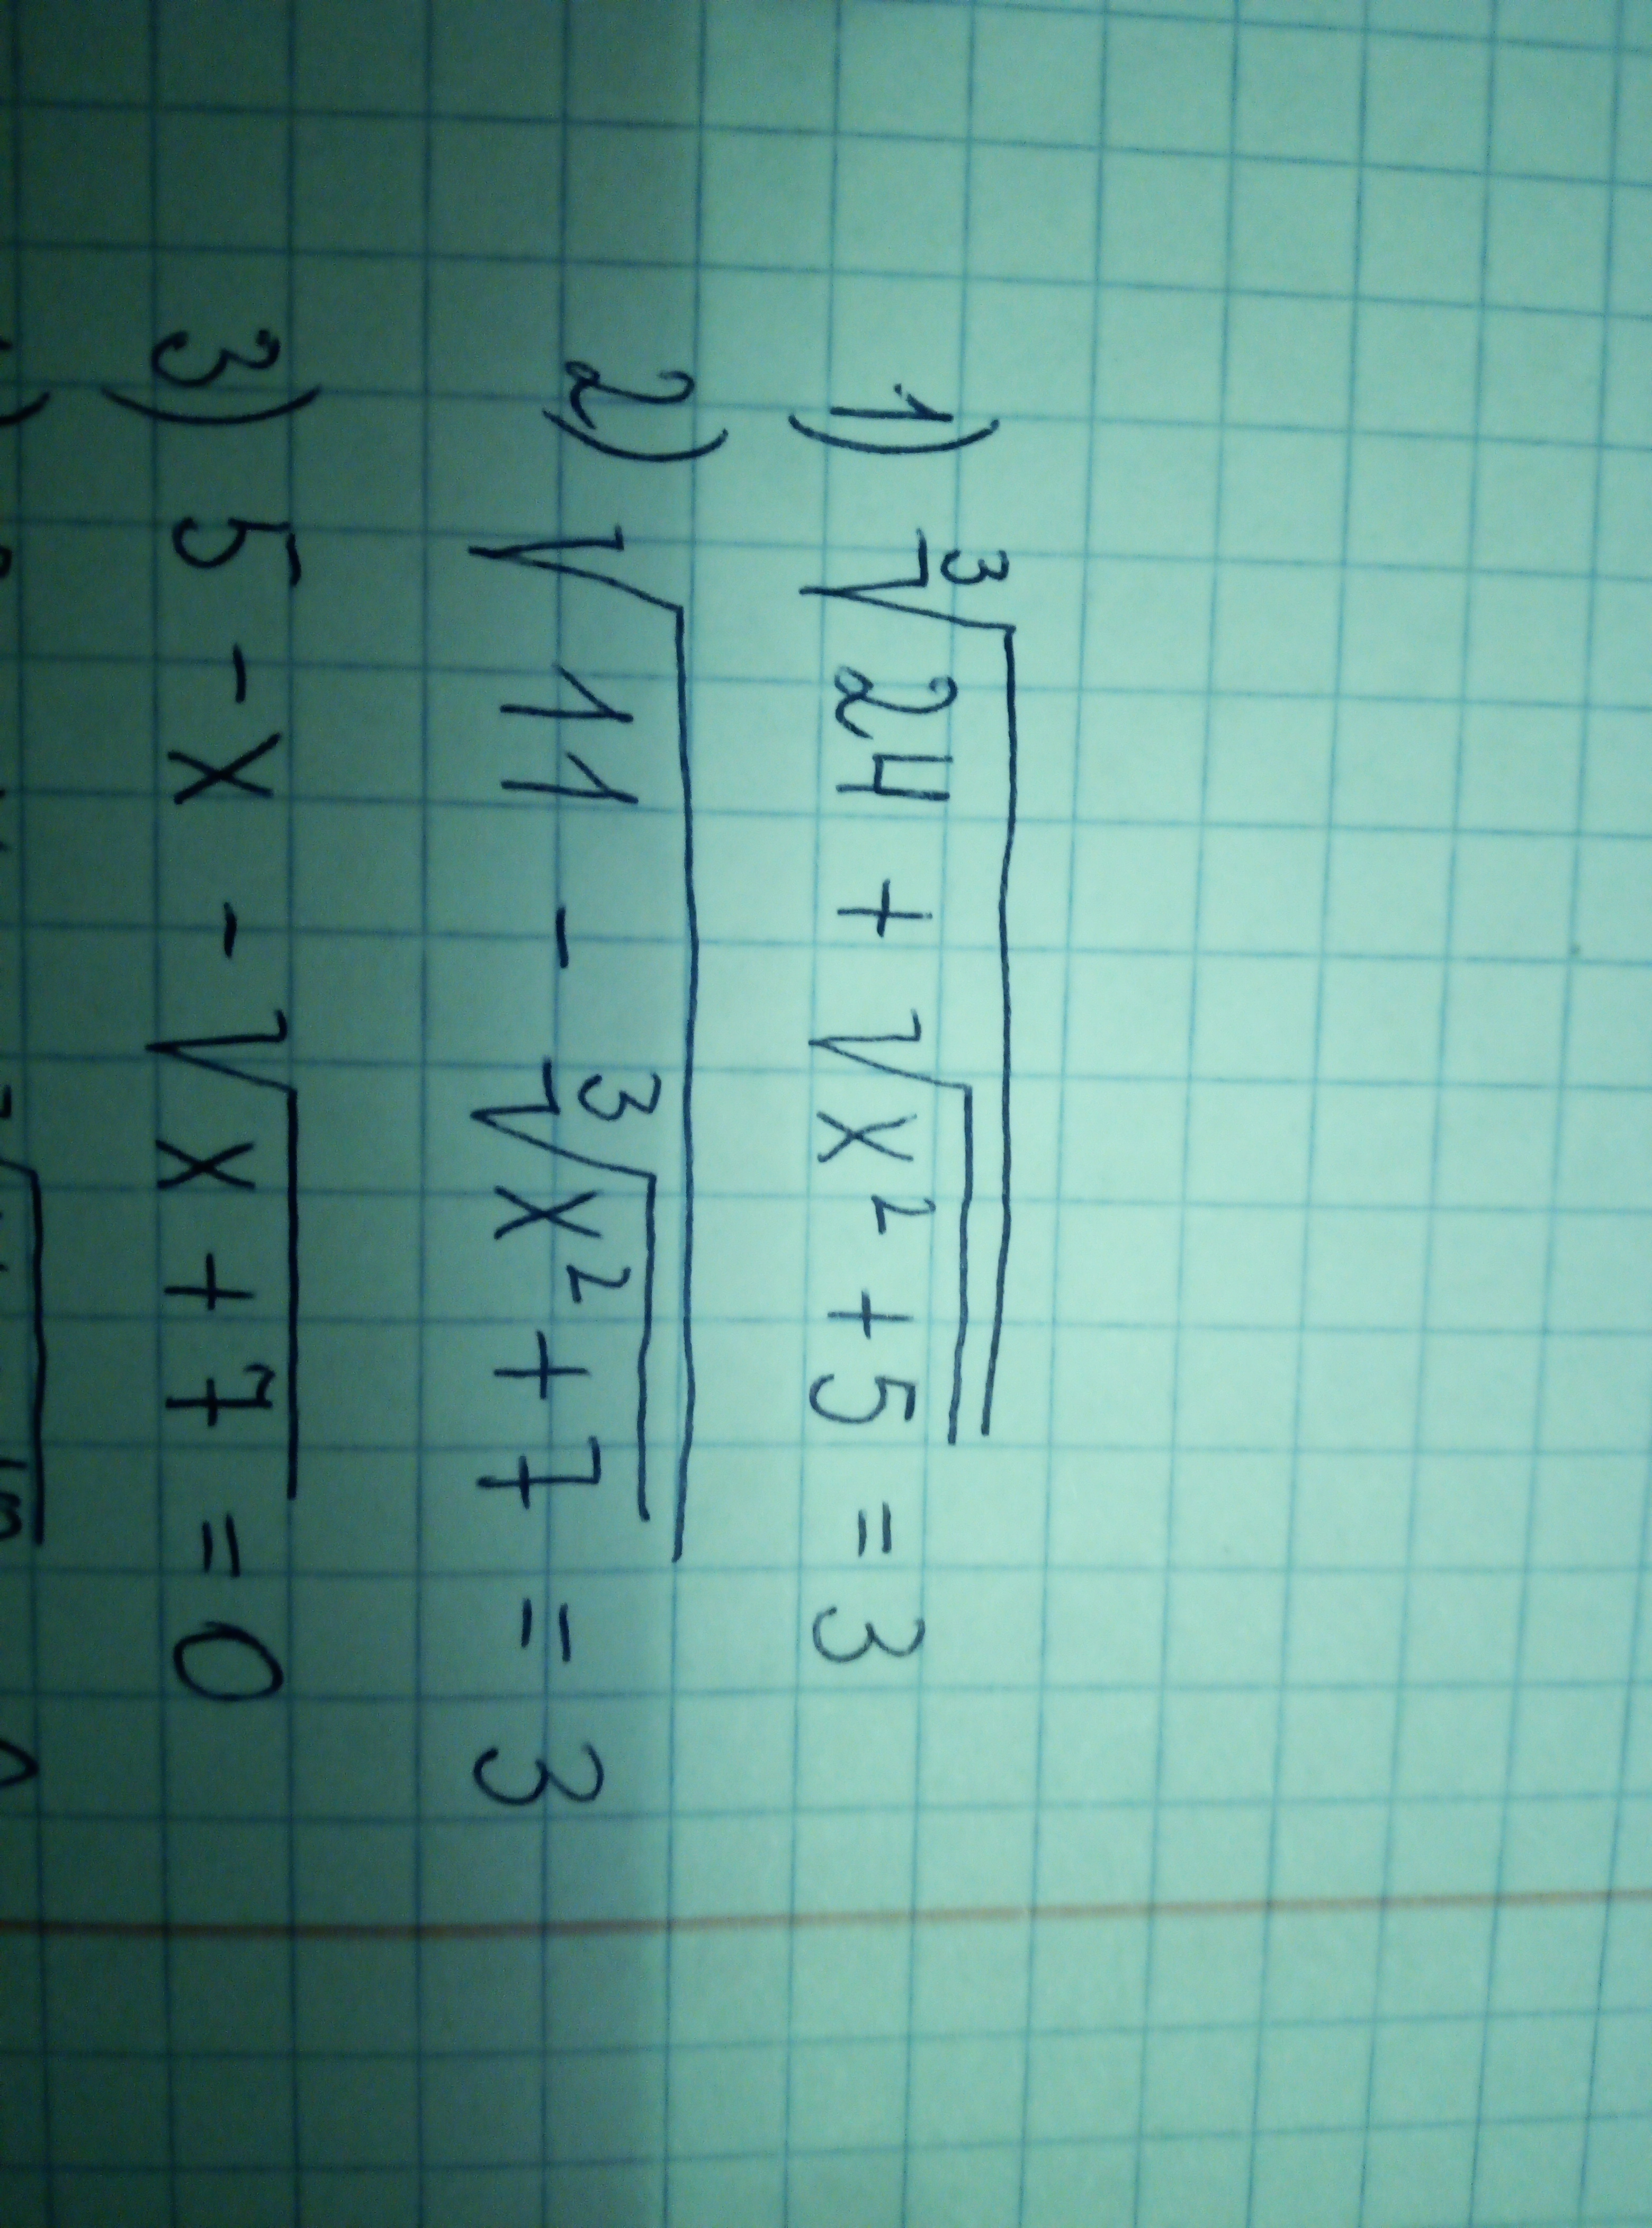 1) ∛(24 + √(x² + 5)) = 3
2) √(11 - ∛(x² + 7)) = 3
3) 5 - x - √(x + 7) = 0